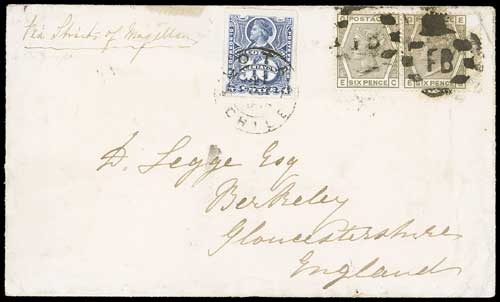 Via Straits of Magellan
POSTAGE
E SIX PENCE C
SIX PENCE
CHILE
D. Legge Esq
Berkeley
Gloucestershire
England